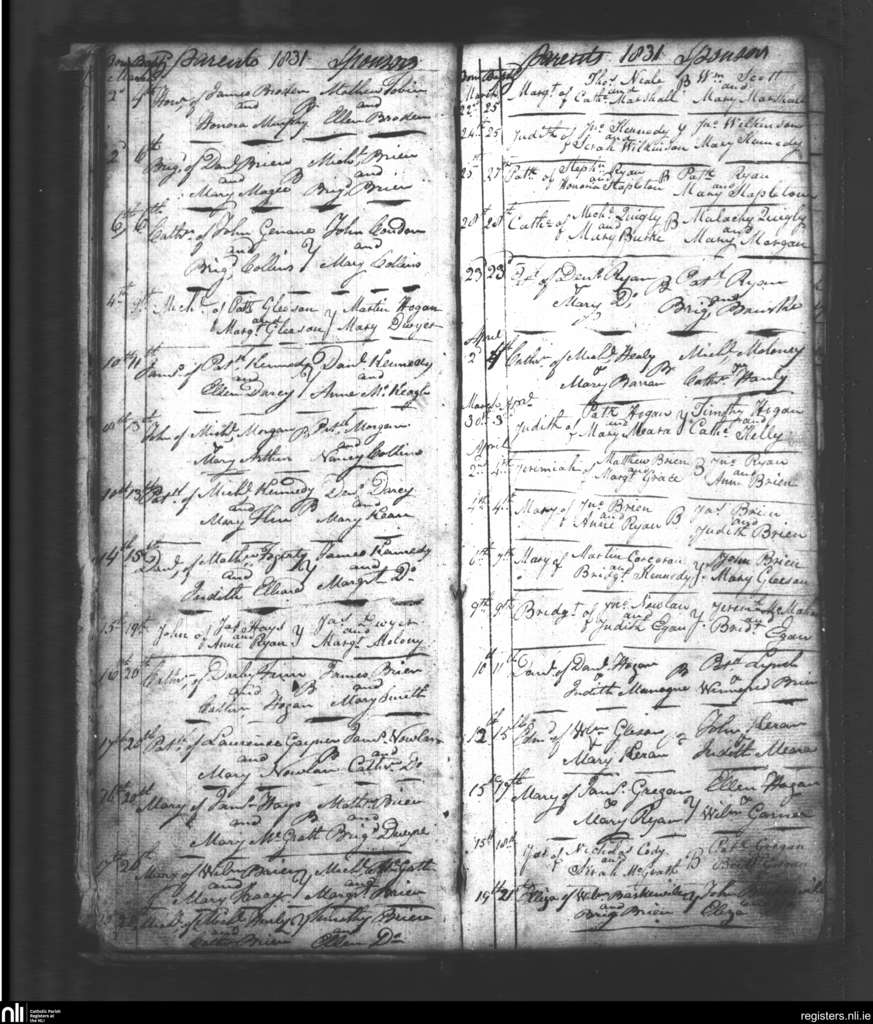 Born Bapt. Parents 1831 Sponsors
March
2d 4th Hon. of James Broden Mathew Tobin
and B and
Honora Murphy Ellen Broden
2d 6th Brig. of Danl. Brien Michl. Brien
and B and
Mary Magee Brigt. Brien
6th 6th Cathr. of John Genane John Condon
and Y and
Brigt. Collins Mary Collins
4th 9th Michl. of Patk. Gleeson Y Martin Hogan
and
Margt. Gleeson Mary Dwyer
10th 11th James of Patk. Kennedy Danl. Kennedy
and Y and
Ellen Darcy Anne McKeagh
13th John of Michl. Morgan B Patk. Morgan
& and
Mary Arthur Nancy Collins
10th 13th Patk. of Michl. Kennedy Danl. Darcy
and B and
Mary Mary Keane
14th 15th Danl. of Mathw. Fogerty James Kennedy
and Y and
Judith Margt. Do
15th 19th John of Jas. Hays Y Jas. Dwyer
and and
Anne Ryan Margt. Molony
20th Cathr. of Darby James Brien
and B and
Cathr. Hogan Mary Sinett
17th 20th Patk. of Laurence Gaynor James Nowlan
and B and
Mary Nowlan Cathr. Do
20th Mary of James Hays Mathw. Brien
and B and
Mary McGrath Brigt. Dwyer
20th Mary of Wilm. Brien Y Michl. McGath
and and
Mary Margt. Brien
Michl. of Michl. Y Timothy Brien
and and
Cathr. Brien Ellen Do
Born Bapt. Parents 1831 Sponsors
March
22d 25 Margt. of Thos. Neale B Wm. Scott
and and
Cathe. Marshall Mary Marshall
24th 25 Judith of Jno. Kennedy Y Jas. Wilkinson
and
Sarah Wilkinson Mary Kennedy
25th 27th Patk. of Stephn. Ryan B Patk. Ryan
and and
Honoria Stapleton Mary Stapleton
28th 28th Cathe. of Michl. Quigly B Malachy Quigly
& and
Mary Burke Mary Morgan
23d 23d of Denl. Ryan B Patk. Ryan
& and
Mary Do Brigt. Bourke
April
2d 4th Cathr. of Michl. Healy B Michl. Moloney
& &
Mary Barran Cathr. Hanly
March April
30th 3d Judith of Patk. Hogan Y Timothy Hogan
and and
Mary Meara Cathe. Kelly
April
2nd 4th Jeremiah of Matthew Brien B Jno. Ryan
and and
Margt. Grace Anne Brien
4th 4th Mary of Jno. Brien B Jas. Brien
and and
Anne Ryan Judith Brien
6th 7th Mary of Martin Corcoran Y John Brien
and
Bridgt. Kennedy Mary Gleeson
9th 9th Bridgt. of Jno. Nowlan Y Jeremiah
and
Judith Egan Bridgt. Egan
10th 11th Danl. of Danl. Hogan B Patk. Lynch
& &
Judith Manogue Winnefred Brien
12th 15th Edmd. of Wm. Gleson John Keran
& &
Mary Keran Judith Meara
15th 17th Mary of James Gregan Ellen Hogan
& Y &
Mary Ryan Wilm. Carner
15th 18th Jas. of Nicholas Cody B Patk. Gregan
and
Sarah McGrath
19th 21st Eliza of Wilm. Baskerville Y John
and
Brigt. Brien Eliza
nli Catholic Parish
Registers at
the NLI
registers.nli.ie